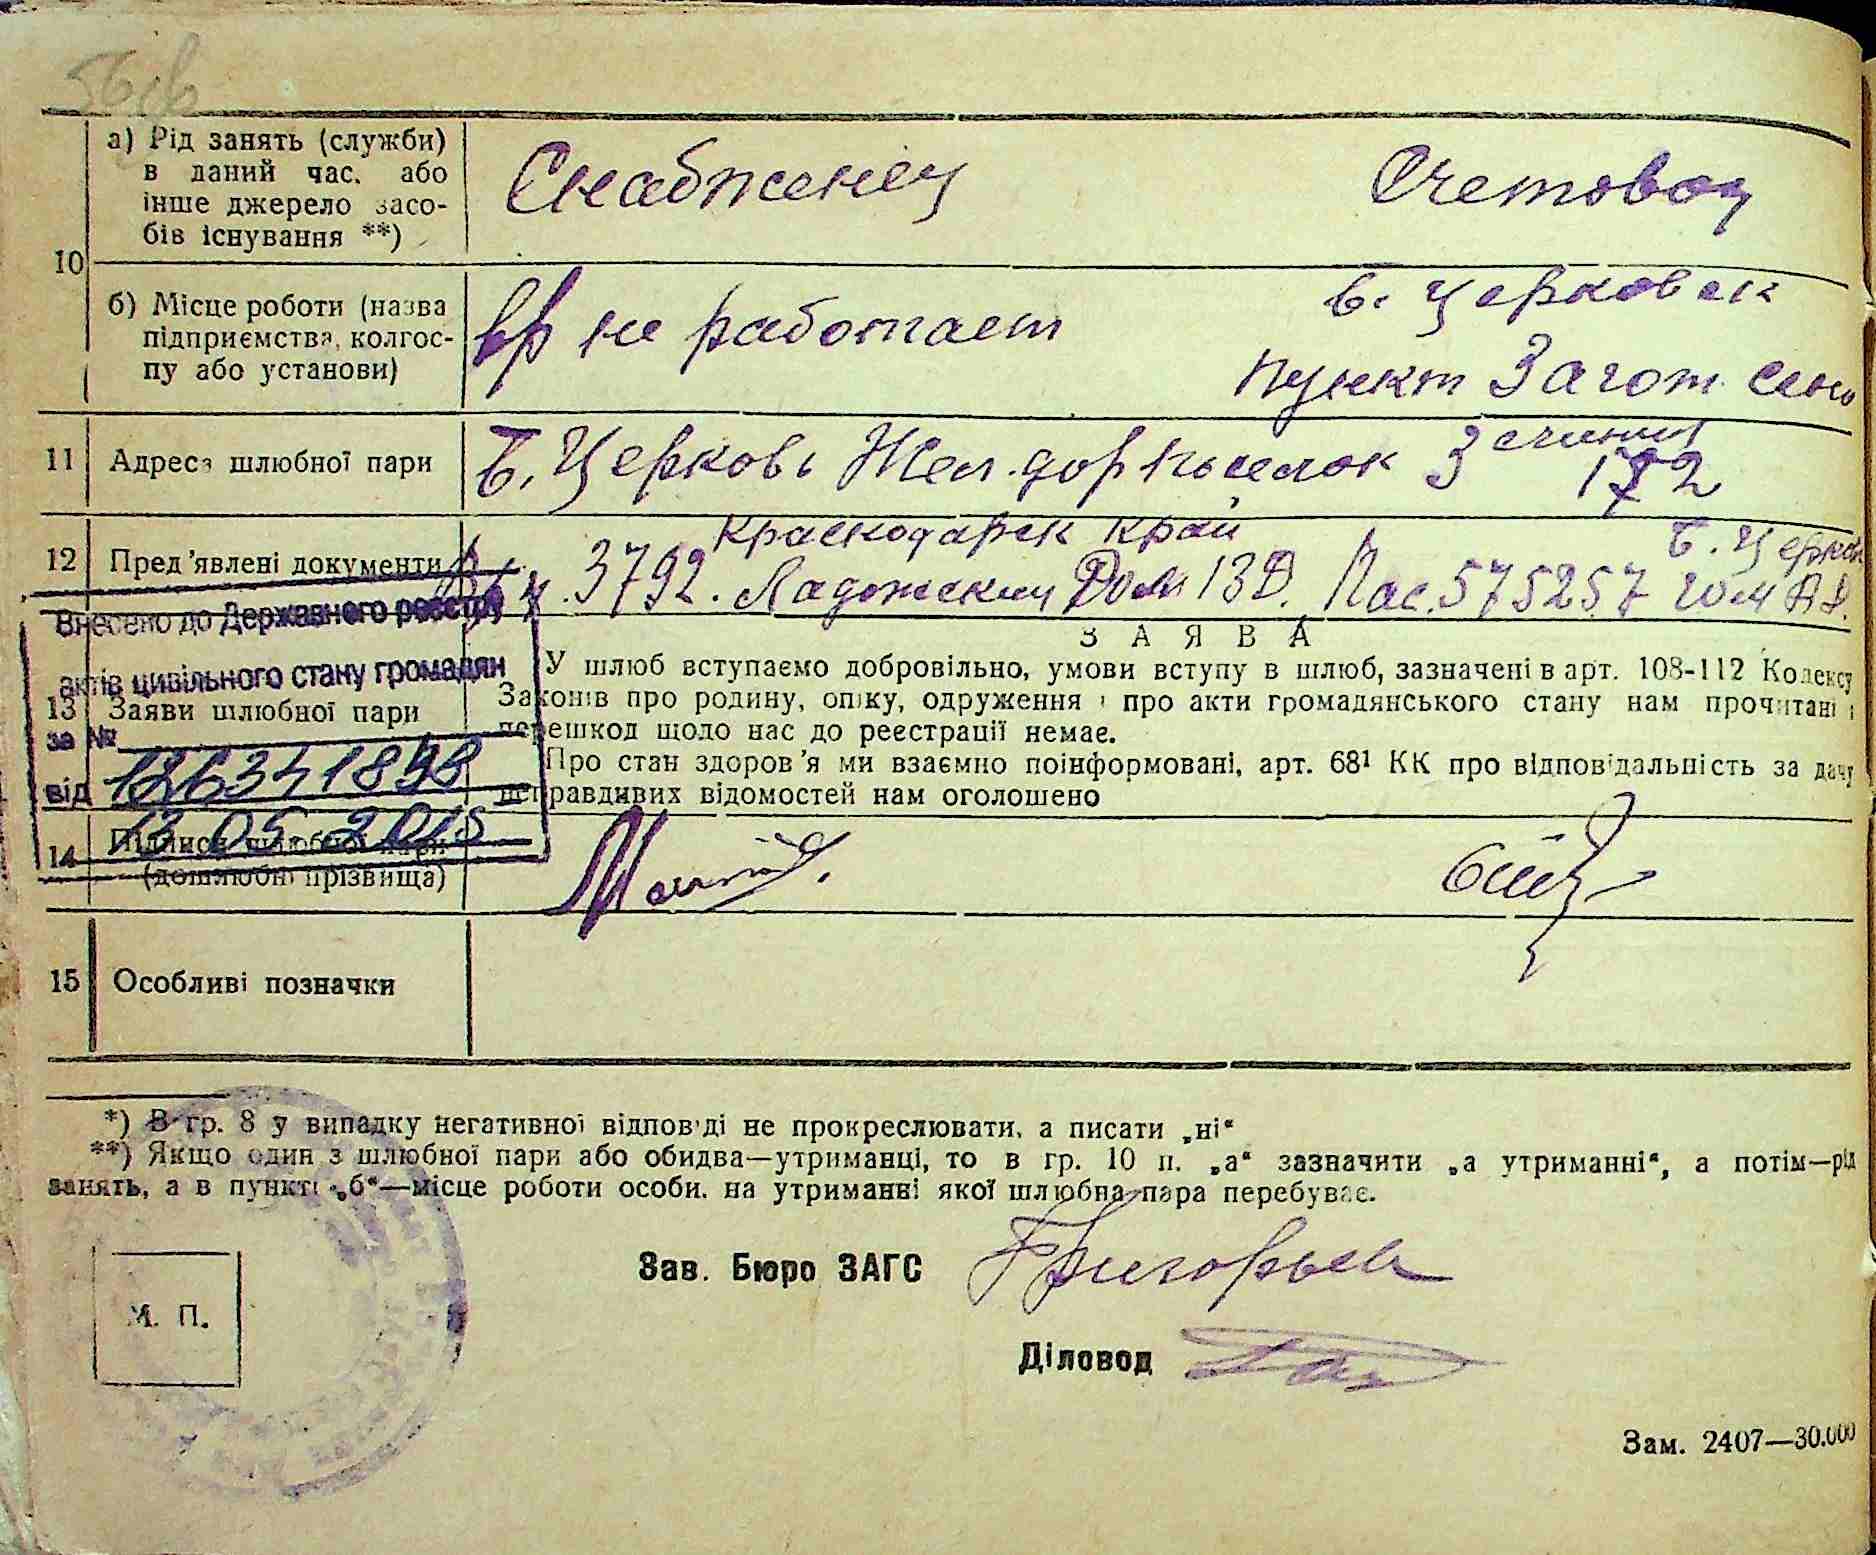 10
а) Рід занять (служби)
в даний час, або
інше джерело засо-
бів існування **)
Снабженец
Счетовод
б) Місце роботи (назва
підприємства, колгос-
пу або установи)
вр не работает
Б. Церковск
пункт Загот сено
11 Адреса шлюбної пари
Б. Церковь Жел. дор поселок 3
172
12 Пред'явлені документи
Краснодарск край
Б. Церков
3792. Ладожский Ром 13 Д. Пас. 575257 гом
Внесено до Державного реєстру
актів цивільного стану громадян
за №
126341898
від
13 05 2015
13 Заяви шлюбної пари
ЗАЯВА
У шлюб вступаємо добровільно, умови вступу в шлюб, зазначені в арт. 108-112 Кодексу
Законів про родину, опіку, одруження і про акти громадянського стану нам прочитані і
перешкод щодо нас до реєстрації немає.
Про стан здоров'я ми взаємно поінформовані, арт. 68¹ КК про відповідальність за дачу
неправдивих відомостей нам оголошено
14 Підписи шлюбної пари
(дошлюбні прізвища)
15 Особливі позначки
*) В гр. 8 у випадку негативної відповіді не прокреслювати, а писати „ні“
**) Якщо один з шлюбної пари або обидва—утриманці, то в гр. 10 п. „а“ зазначити „а утриманні“, а потім—рід
занять, а в пункті „б“—місце роботи особи, на утриманні якої шлюбна пара перебуває.
Зав. Бюро ЗАГС Григорьев
М. П.
Діловод
Зам. 2407—30.000